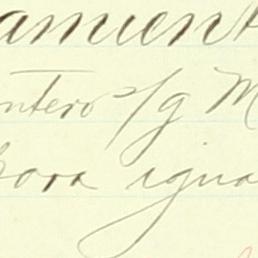 amient
ntero s/g M
bora igno